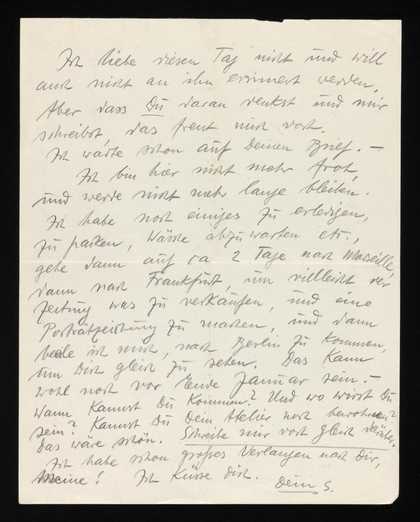 Ich liebe diesen Tag nicht und will
auch nicht an ihn erinnert werden.
Aber dass Du daran denkst und mir
schreibst, das freut mich doch.
Ich warte schon auf Deinen Brief. —
Ich bin hier nicht mehr froh,
und werde nicht mehr lange bleiben.
Ich habe noch einiges zu erledigen,
zu packen, Wäsche abzuwarten etc.,
gehe dann auf ca 2 Tage nach Marseille,
dann nach Frankfurt um vielleicht der
Zeitung was zu verkaufen, und eine
Porträtzeichnung zu machen, und dann
beeile ich mich, nach Berlin zu kommen,
um Dich gleich zu sehen. Das kann
wohl noch vor Ende Januar sein. —
Wann kannst Du kommen? Und wo wirst Du
sein? Kannst Du Dein Atelier noch bewohnen?
Das wäre schön. Schreibe mir doch gleich darüber.
Ich habe schon grosses Verlangen nach Dir,
Meine! Ich küsse Dich. Dein S.